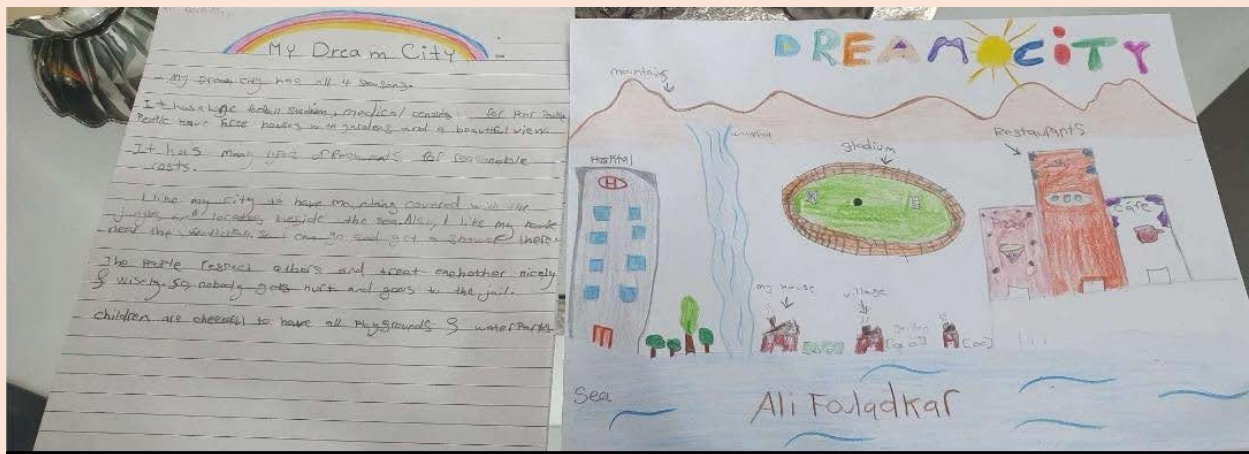 My Dream City
- My Dream city has all 4 seasons.
It has a huge football stadium, medical for poor
People have free houses with gardens and a beautiful view.
- It has many of for reasonable
costs.
I like my city to have mountains covered with the
jungles and located beside the sea. Also, I like my house
near the so I can go and get a shower there.
The People respect others and treat eachother nicely
& wisely. so nobody gets hurt and goes to the jail.
children are cheerful to have all playgrounds & waterparks
DREAM CITY
mountains
Hospital
H
Stadium
Restaurants
Sushi
Pizza
Cafe
my house
village
garden
Sea
Ali Fouladkar